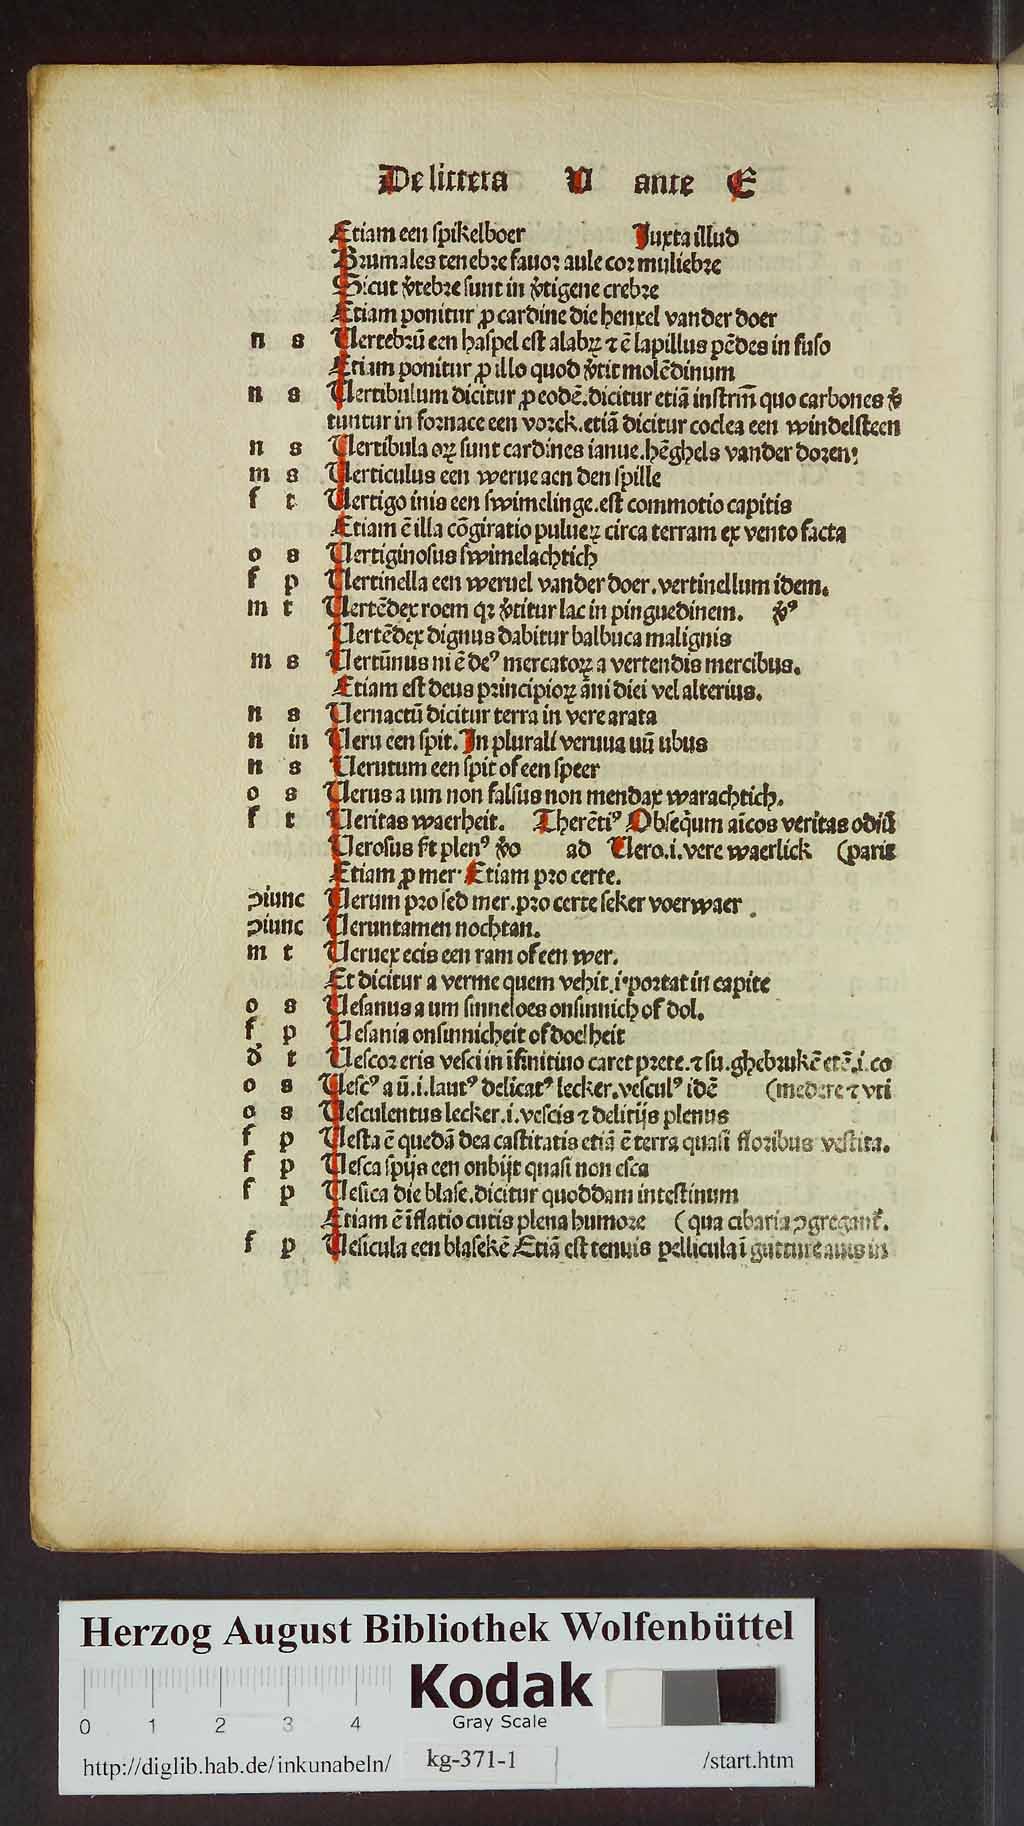 De littera V ante E
Etiam een spikelboer Juxta illud
Brumales tenebre fauor aule cor muliebre
Sicut v̄tebre sunt in v̄tigene crebre
Etiam ponitur ꝓ cardine die henxel vander doer
n s Vertebrū een haspel est alabꝝ ⁊ ē lapillus pēdes in fuso
Etiam ponitur ꝓ illo quod v̄tit molēdinum
n s Vertibulum dicitur ꝓ eodē. dicitur etiā instrm̄ quo carbones v̄
tuntur in fornace een vorck. etiā dicitur coclea een windelsteen
n s Vertibula oꝝ sunt cardines ianue. hēghels vander doren:
m s Verticulus een werue aen den spille
f t Vertigo inis een swimelinge. est commotio capitis
Etiam ē illa cōgiratio pulueꝝ circa terram ex vento facta
o s Vertiginosus swimelachtich
f p Vertinella een weruel vander doer. vertinellum idem.
m t Vertēdex roem qꝛ v̄titur lac in pinguedinem. v̄ꝰ
Vertēdex dignus dabitur balbuca malignis
m s Vertūnus ni ē deꝰ mercatoꝝ a vertendis mercibus.
Etiam est deus principioꝝ āni diei vel alterius.
n s Vernactū dicitur terra in vere arata
n in Veru een spit. In plurali veruua uū ubus
n s Verutum een spit of een speer
o s Verus a um non falsus non mendax warachtich.
f t Veritas waerheit. Therētiꝰ Obseq̄um aīcos veritas odiū
Verosus ſt plenꝰ v̄o ad Vero .i. vere waerlick (parit
Etiam ꝓ mer. Etiam pro certe.
ꝯiunc Verum pro sed mer. pro certe seker voerwaer
ꝯiunc Veruntamen nochtan.
m t Veruex ecis een ram of een wer.
Et dicitur a verme quem vehit .i. portat in capite
o s Vesanus a um sinneloes onsinnich of dol.
f p Vesania onsinnicheit of doelheit
d̄ t Vescor eris vesci in īfinitiuo caret prete. ⁊ su. ghebrukē etē .i. co
o s Vescꝰ a ū .i. lautꝰ delicatꝰ lecker. vesculꝰ idē (medere ⁊ vti
o s Vesculentus lecker .i. vescis ⁊ delitijs plenus
f p Vesta ē quedā dea castitatis etiā ē terra quasi floribus vestita.
f p Vesca spijs een onbijt quasi non esca
f p Vesica die blase. dicitur quoddam intestinum
Etiam ē īflatio cutis plena humore (qua cibaria ꝯgregant̄.
f p Vesicula een blasekē Etiā est tenuis pellicula ī gutture auis in
Herzog August Bibliothek Wolfenbüttel
0 1 2 3 4
Kodak
Gray Scale
http://diglib.hab.de/inkunabeln/ kg-371-1 /start.htm